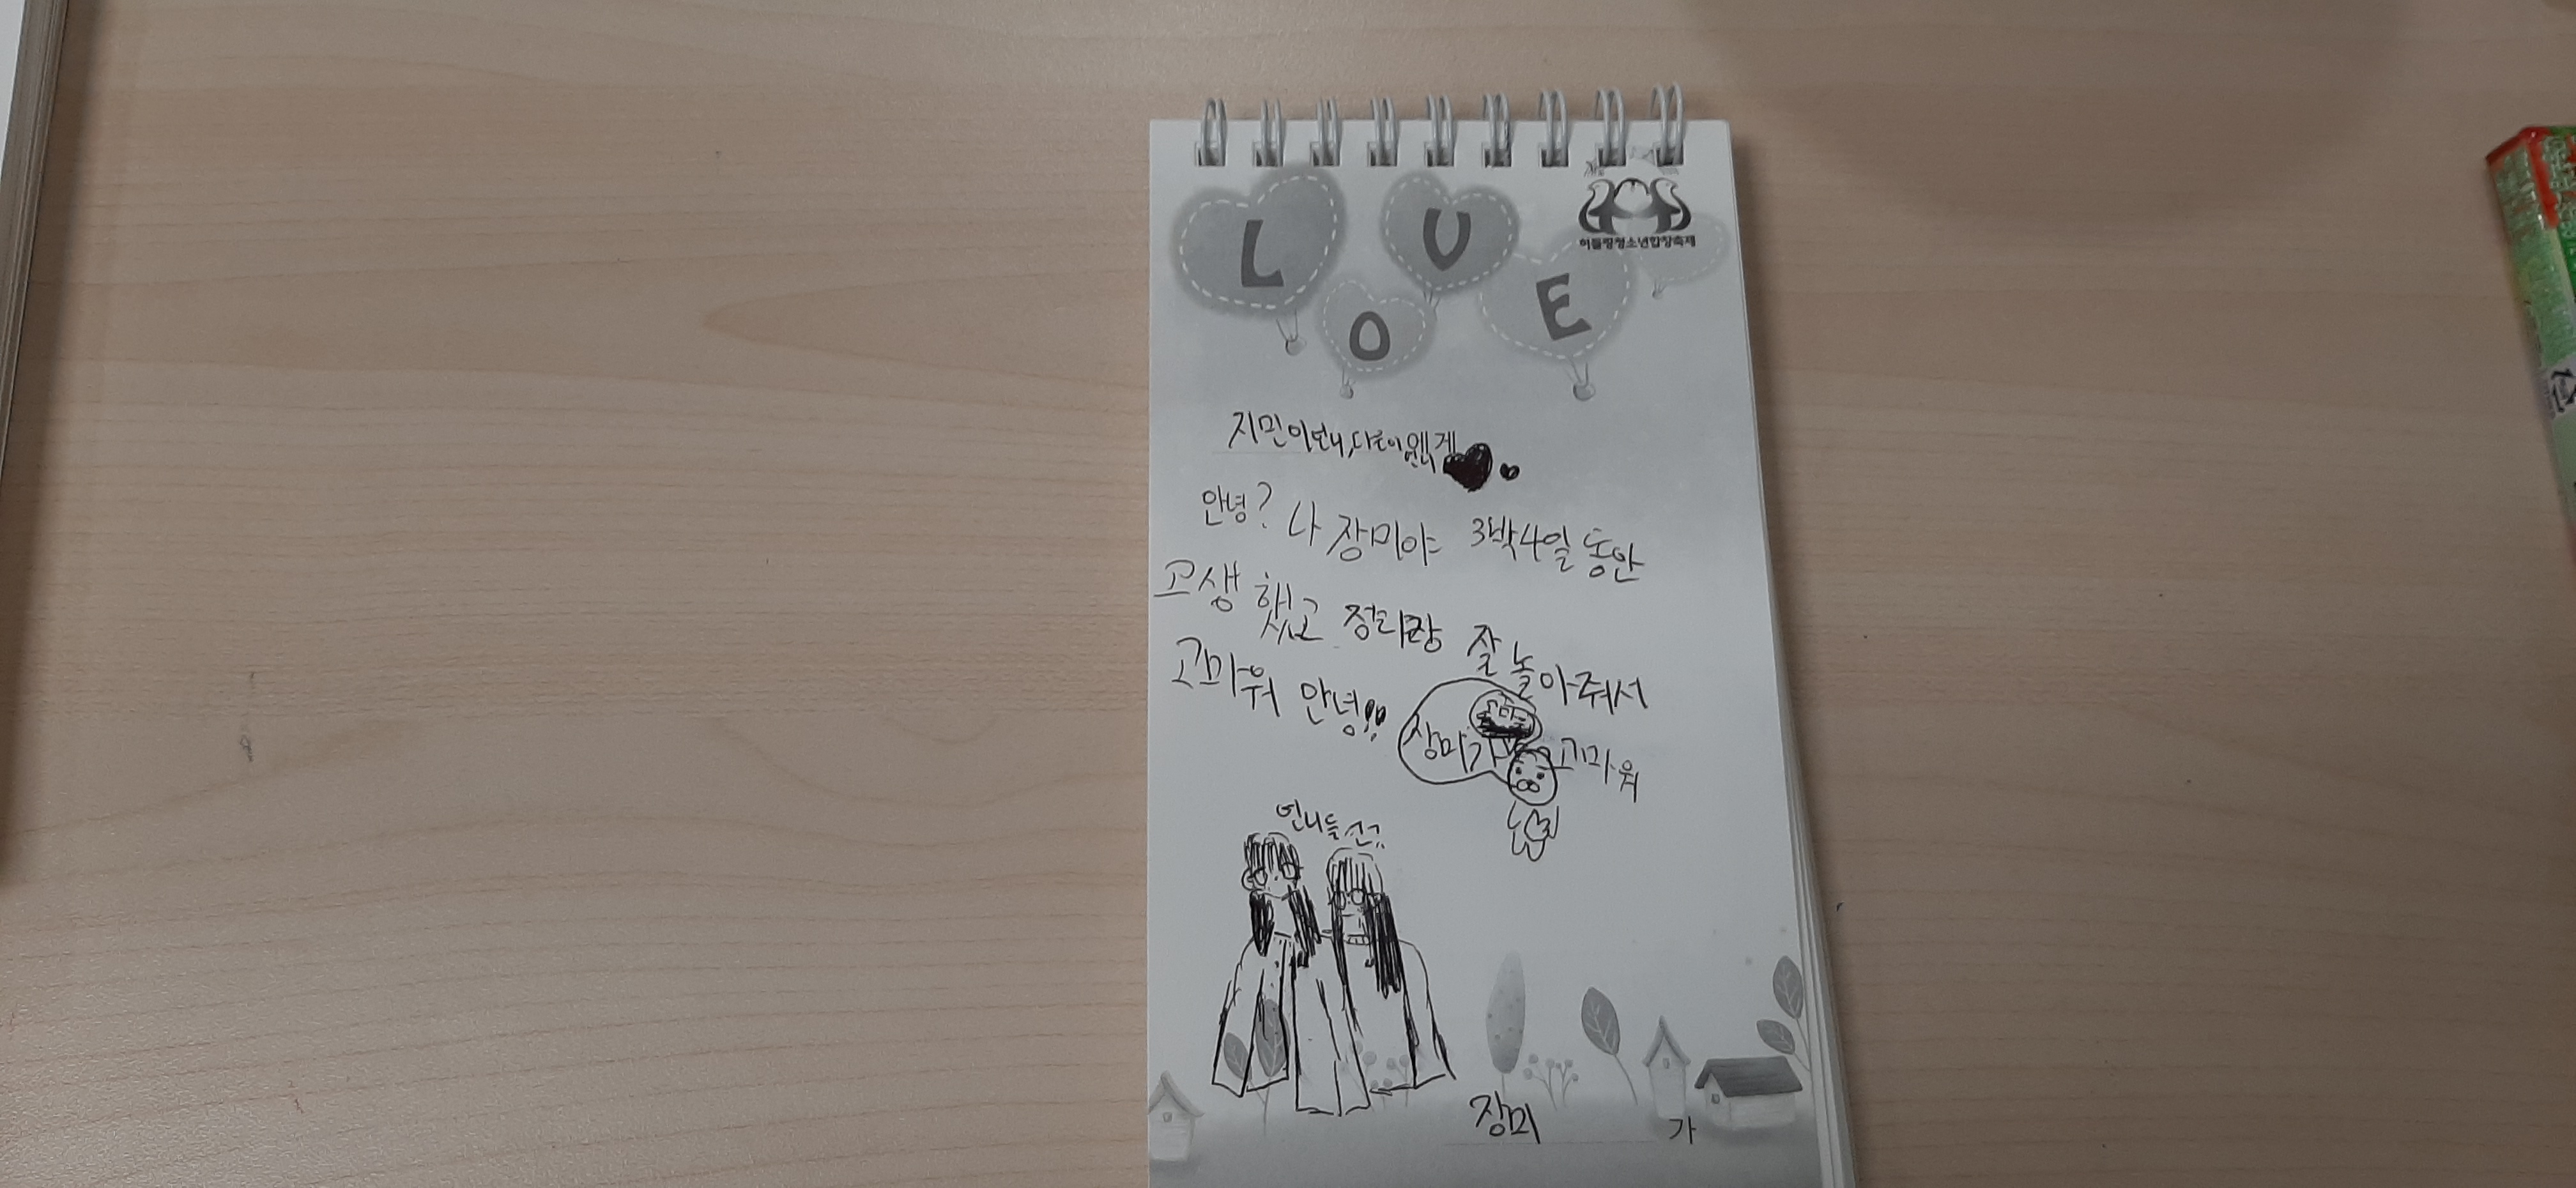 L O V E
허들링청소년합창축제
지민이언니,다른이언니에게
안녕? 나 장미야 3박4일 동안
고생 했고 정리랑 잘 놀아줘서
고마워 안녕!!
장미가
고마워
언니들
장미 가